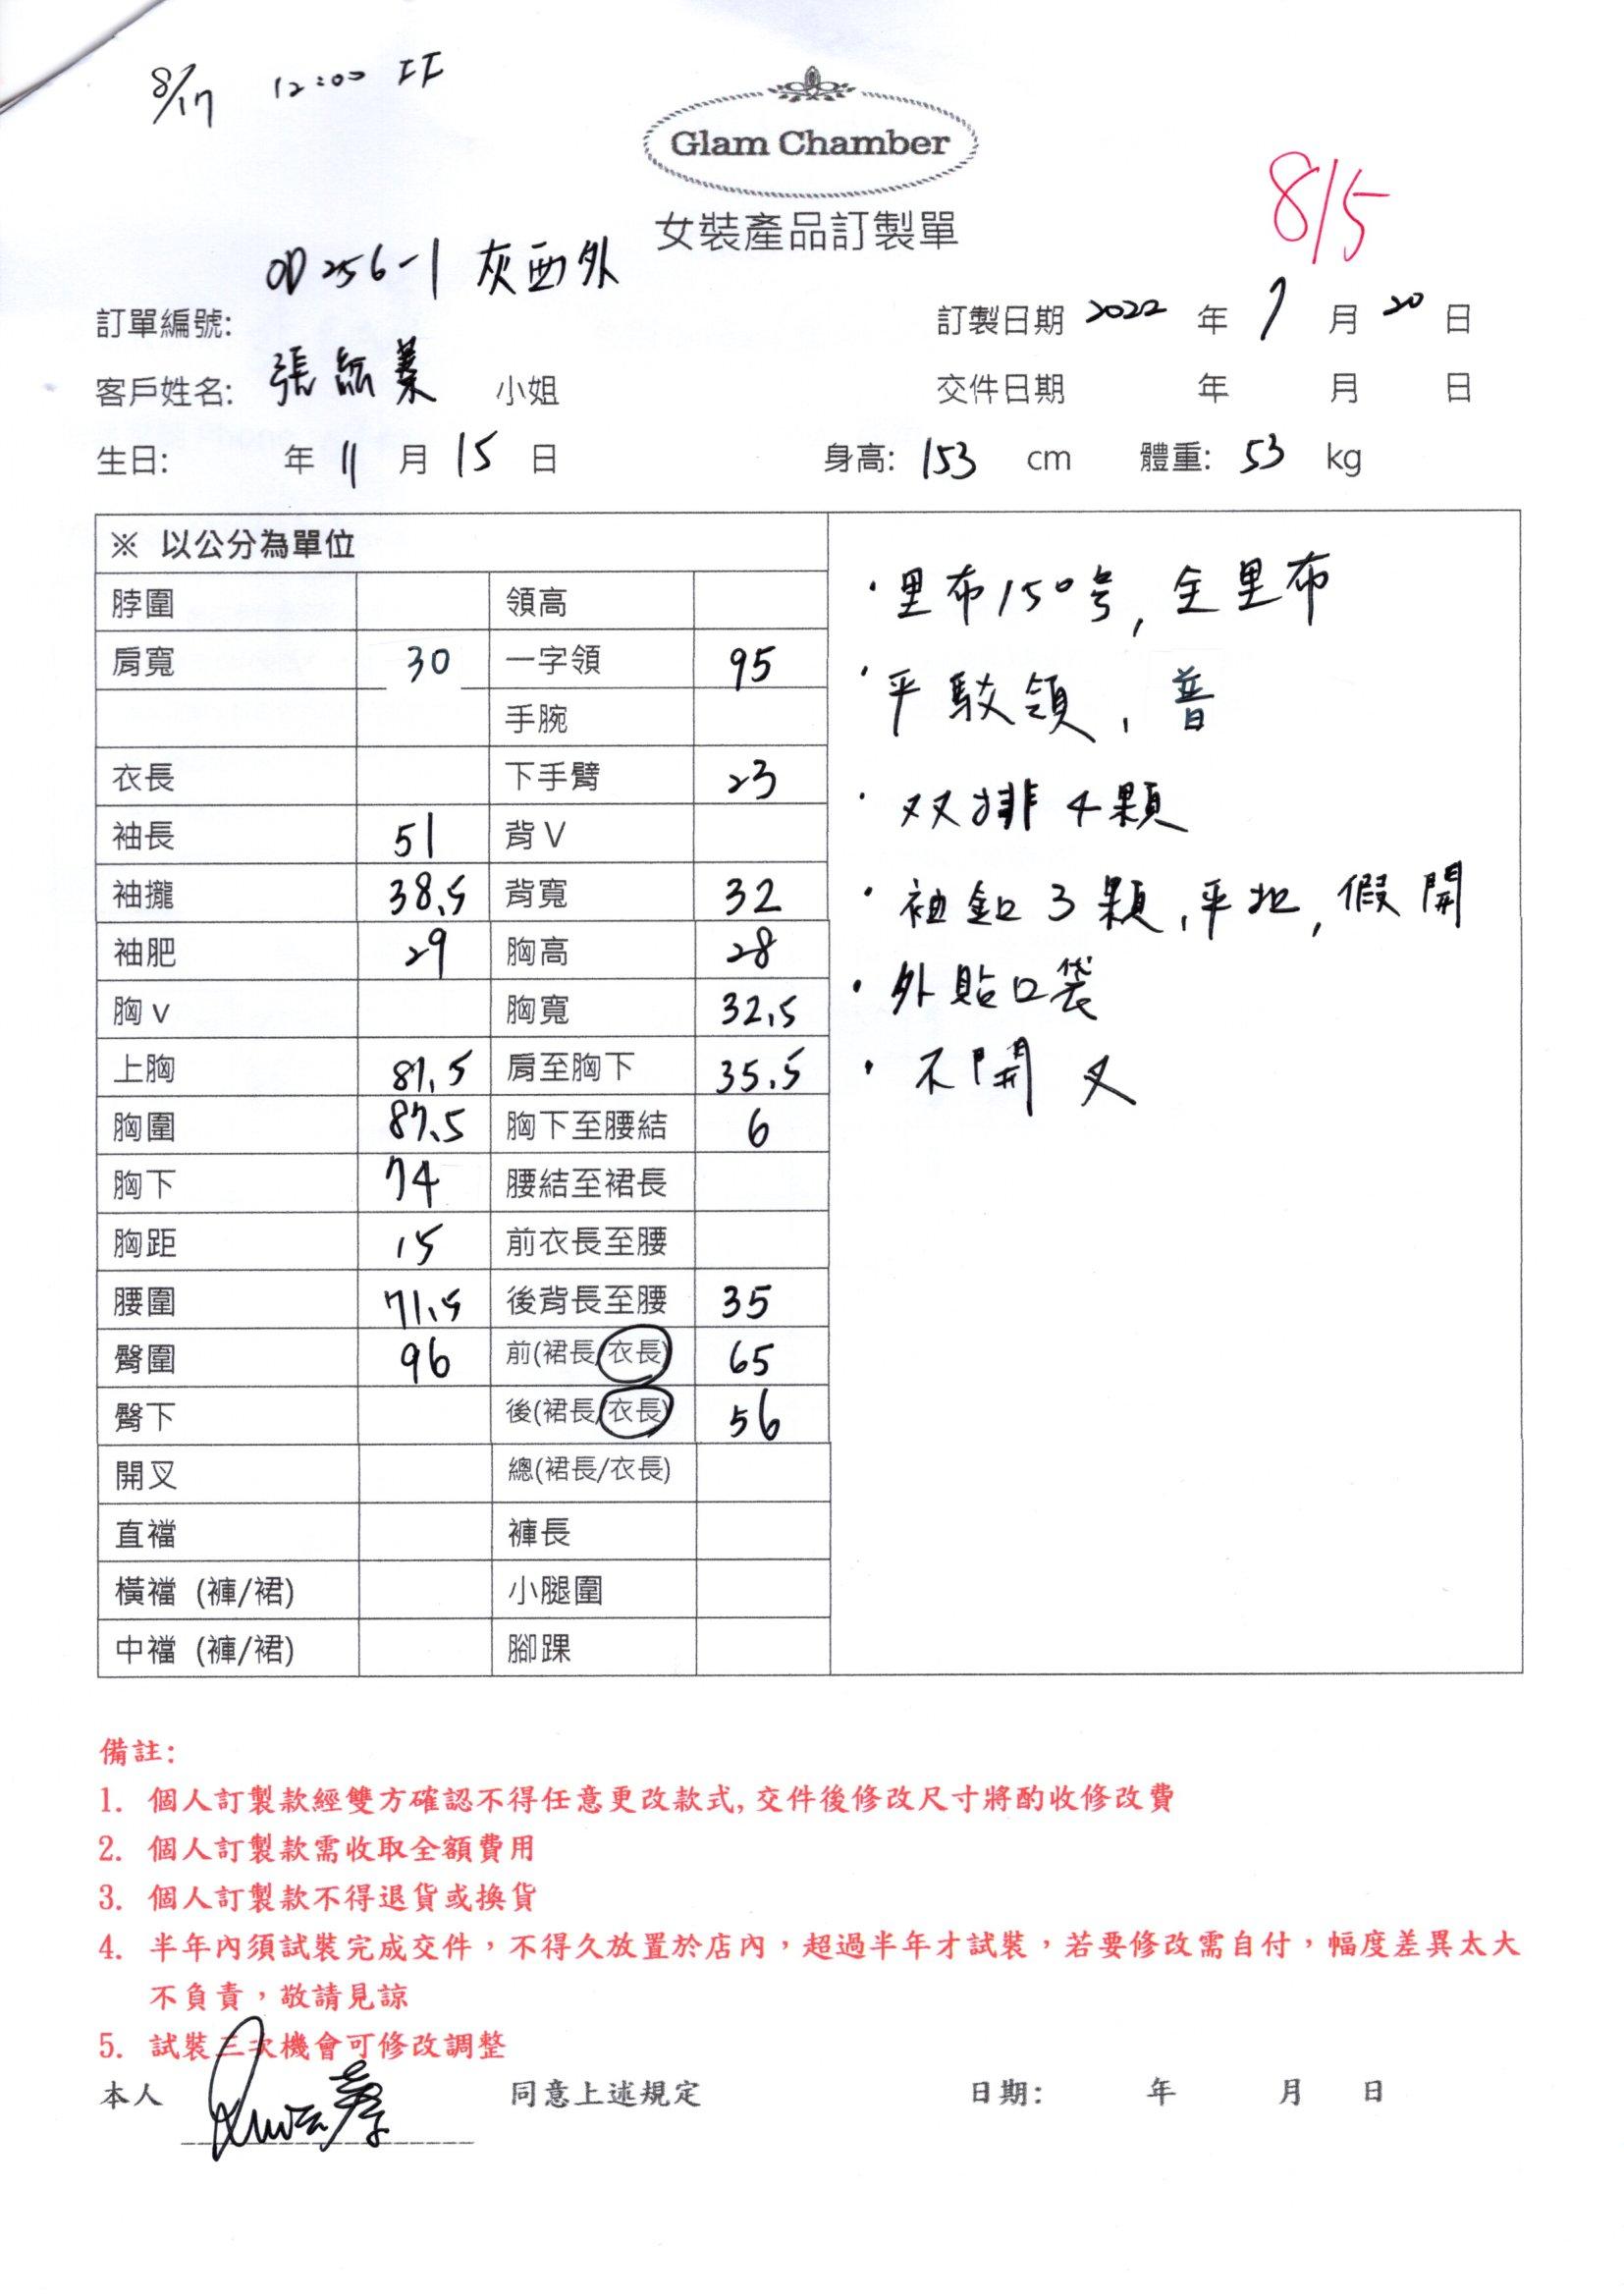 8/17 12:00 FF
Glam Chamber
8/5
女裝產品訂製單
訂單編號: OD256-1 灰西外
訂製日期 2022 年 7 月 20 日
客戶姓名: 張 小姐
交件日期 年 月 日
生日: 年 11 月 15 日 身高: 153 cm 體重: 53 kg
※ 以公分為單位
脖圍 領高
肩寬 30 一字領 95
手腕
衣長 下手臂 23
袖長 51 背V
袖攏 38.5 背寬 32
袖肥 29 胸高 28
胸v 胸寬 32.5
上胸 87.5 肩至胸下 35.5
胸圍 87.5 胸下至腰結 6
胸下 74 腰結至裙長
胸距 15 前衣長至腰
腰圍 71.5 後背長至腰 35
臀圍 96 前(裙長/衣長) 65
臀下 後(裙長/衣長) 56
開叉 總(裙長/衣長)
直襠 褲長
橫襠 (褲/裙) 小腿圍
中襠 (褲/裙) 腳踝
・里布150号, 全里布
・平駁領, 普
・双排4顆
・袖釦3顆, 平扣, 假開
・外貼口袋
・不開叉
備註:
1. 個人訂製款經雙方確認不得任意更改款式, 交件後修改尺寸將酌收修改費
2. 個人訂製款需收取全額費用
3. 個人訂製款不得退貨或換貨
4. 半年內須試裝完成交件，不得久放置於店內，超過半年才試裝，若要修改需自付，幅度差異太大
不負責，敬請見諒
5. 試裝三次機會可修改調整
本人 同意上述規定 日期: 年 月 日